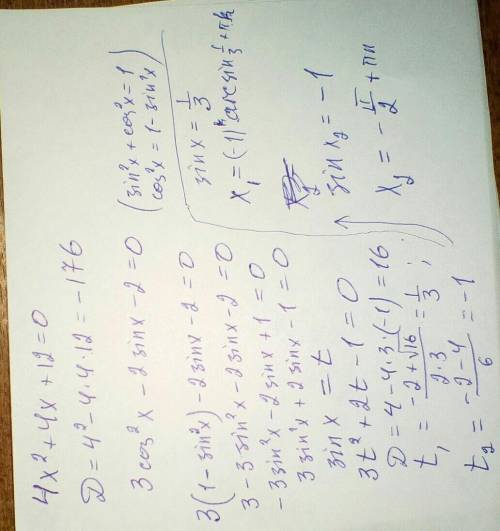 4x²+4x+12=0
D=4²-4·4·12=-176
3cos²x-2sinx-2=0
(sin²x+cos²x=1
cos²x=1-sin²x)
3(1-sin²x)-2sinx-2=0
3-3sin²x-2sinx-2=0
-3sin²x-2sinx+1=0
3sin²x+2sinx-1=0
sinx=t
3t²+2t-1=0
D=4-4·3·(-1)=16
t₁=(-2+√16)/(2·3)=1/3;
t₂=(-2-4)/6=-1
sinx=1/3
x₁=(-1)ᵏarcsin1/3+πk
sinx₂=-1
x₂=-π/2+πn